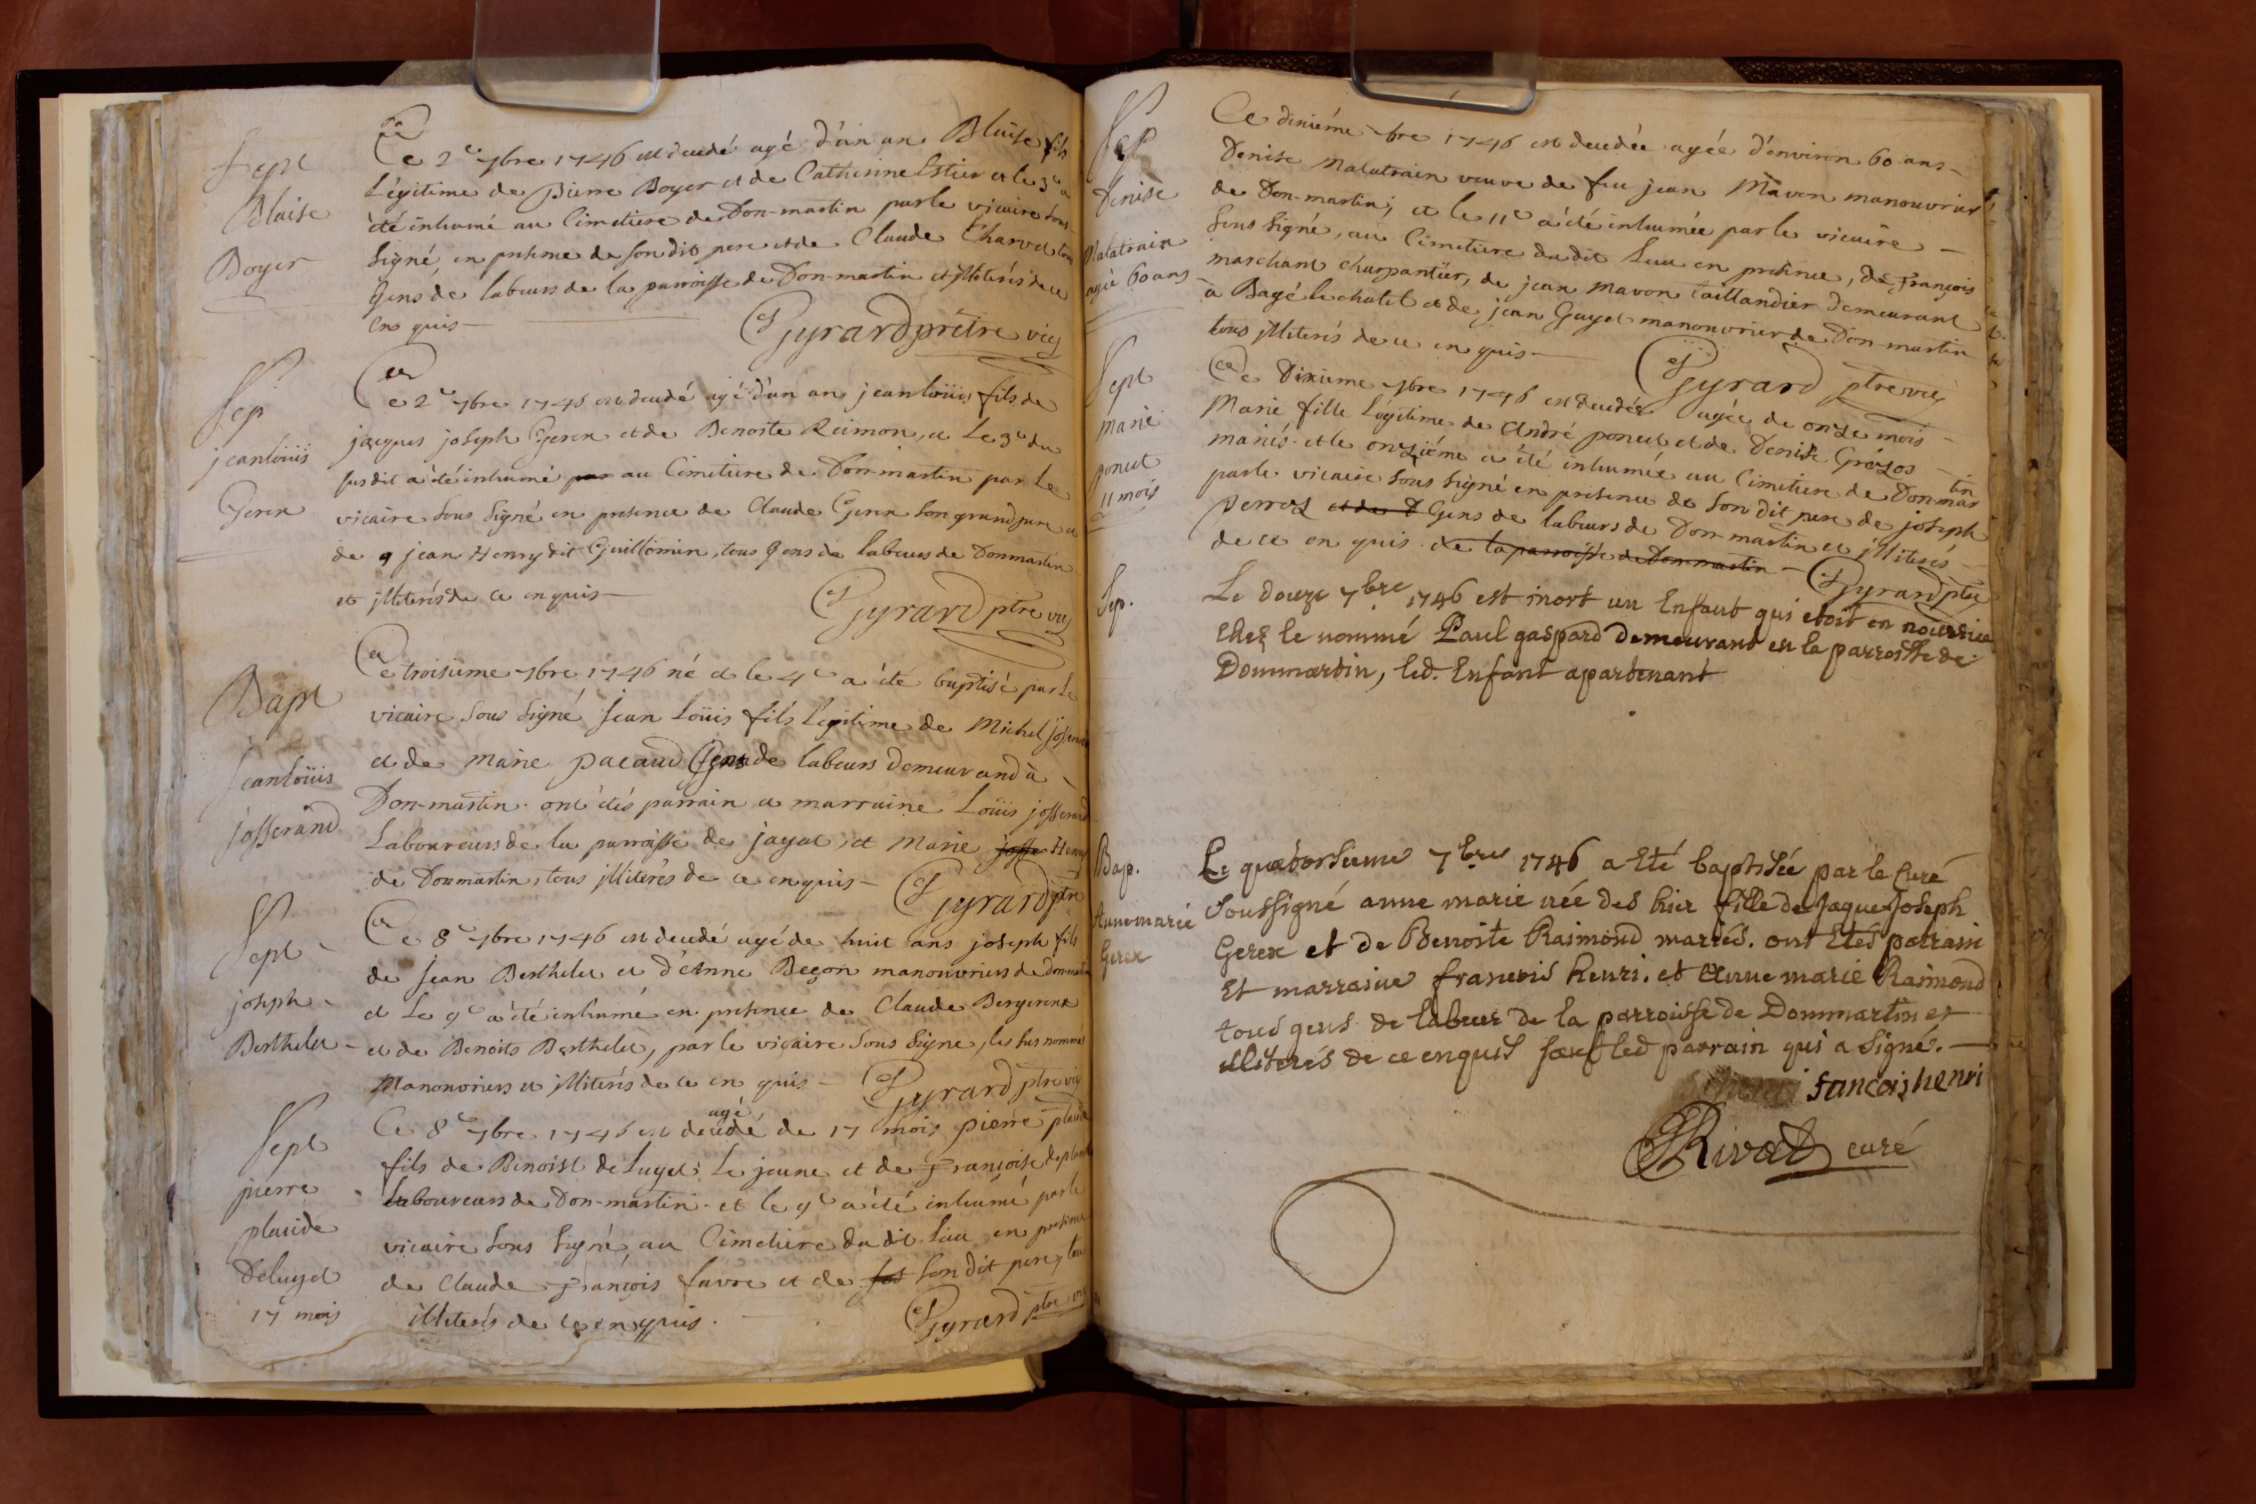 Sept
Blaise
Boyer
Ce 2e 7bre 1746 est decedé agé d'un an Blaise fils
Légitime de Pierre Boyer et de Catherine Estier et le 3e a
été inhumé au Cimetiere de Don-martin par le vicaire sous
signé en presence de son dit pere et de Claude Charvet tous
Gens de labeurs de la parroisse de Don-martin et illiterés de ce
en quis
Gyrard prêtre vic
Sep
jean loüis
Gerex
Ce 2e 7bre 1746 est decedé agé d'un an jean loüis fils de
jacques joseph Gerex et de Benoite Reimon, et Le 3e du
susdit a été inhumé par au Cimetiere de Don-martin par Le
vicaire sous signé en presence de Claude Gerex son grand pere et
de jean Henry dit Guillomin, tous Gens de labeurs de Donmartin
et illiterés de ce en quis
Gyrard ptre vic
Bapt
Jean loüis
josserand
Ce troisieme 7bre 1746 né et le 4e a été baptisé par le
vicaire sous signé Jean Loüis fils legitime de Michel
et de Marie pacaud Gens de labeurs demeurand à
Don-martin. ont étés parrain et marraine Loüis josserand
Laboureurs de la parroisse de jayat et Marie josse Henry
de Donmartin, tous illiterés de ce en quis
Gyrard ptre
Sept
joseph
Berthelet
Ce 8e 7bre 1746 est decedé agé de huit ans joseph fils
de Jean Berthelet et d'Anne Beçon manouvriers de
et Le 9e a été inhumé en presence de Claude
et de Benoits Berthelet, par le vicaire sous signé, les sus nommé
Manouvriers et illiterés de ce en quis
Gyrard ptre vic
Sept
pierre
placide
Deluget
17 mois
agé
Ce 8e 7bre 1746 est decedé de 17 mois pierre placide
fils de Benoist de Luget Le jeune et de Françoise
Laboureurs de Don-martin et le 9e a été inhumé par le
vicaire sous signé au Cimetiere du dit lieu en presence
de Claude François favre et de son son dit pere, tous
illiterés de ce en quis.
Gyrard ptre vic
Sep
Denise
Malatrain
agée 60 ans
Ce dixiéme 7bre 1746 est decedée agée d'environ 60 ans
Denise Malatrain veuve de feu jean Mavon manouvrier
de Don-martin; et le 11e a été inhumée par le vicaire
sous signé, au Cimetiere du dit Lieu en presence, de François
marchant charpantier, de jean Mavon taillandier demeurant
à Bagé le chatel et de jean Guyot manouvrier de Don-martin
tous illiterés de ce en quis
Gyrard ptre vic
Sept
marie
poncet
11 mois
Ce Dixieme 7bre 1746 est decedée agée de onze mois
Marie fille Légitime de André poncet et de Denise Grézos
mariés. et le onziéme a été inhumée au Cimetiere de Don mar
tin
par le vicaire sous signé en presence de son dit pere de joseph
perret et de D Gens de labeurs de Don-martin et illiterés
de ce en quis. de la parroisse de Don-martin
Gyrard ptre
Sep.
Le douze 7bre 1746 est mort un Enfant qui etoit en nourrice
chez le nommé Paul gaspard demeurant en la parroisse de
Dommartin, led. Enfant apartenant
Bap.
Anne marie
Gerex
Le quatorsieme 7bre 1746 a Eté baptisée par le Curé
soussigné anne marie née des hier fille de Jaque Joseph
Gerex et de Benoite Raimond mariés. ont Etés parrain
Et marraine francois henri. et Anne marie Raimond
tous gens de labeur de la parroisse de Dommartin et
illiterés de ce enquis sauf led parrain qui a signé.
fancois henri
Rivat curé